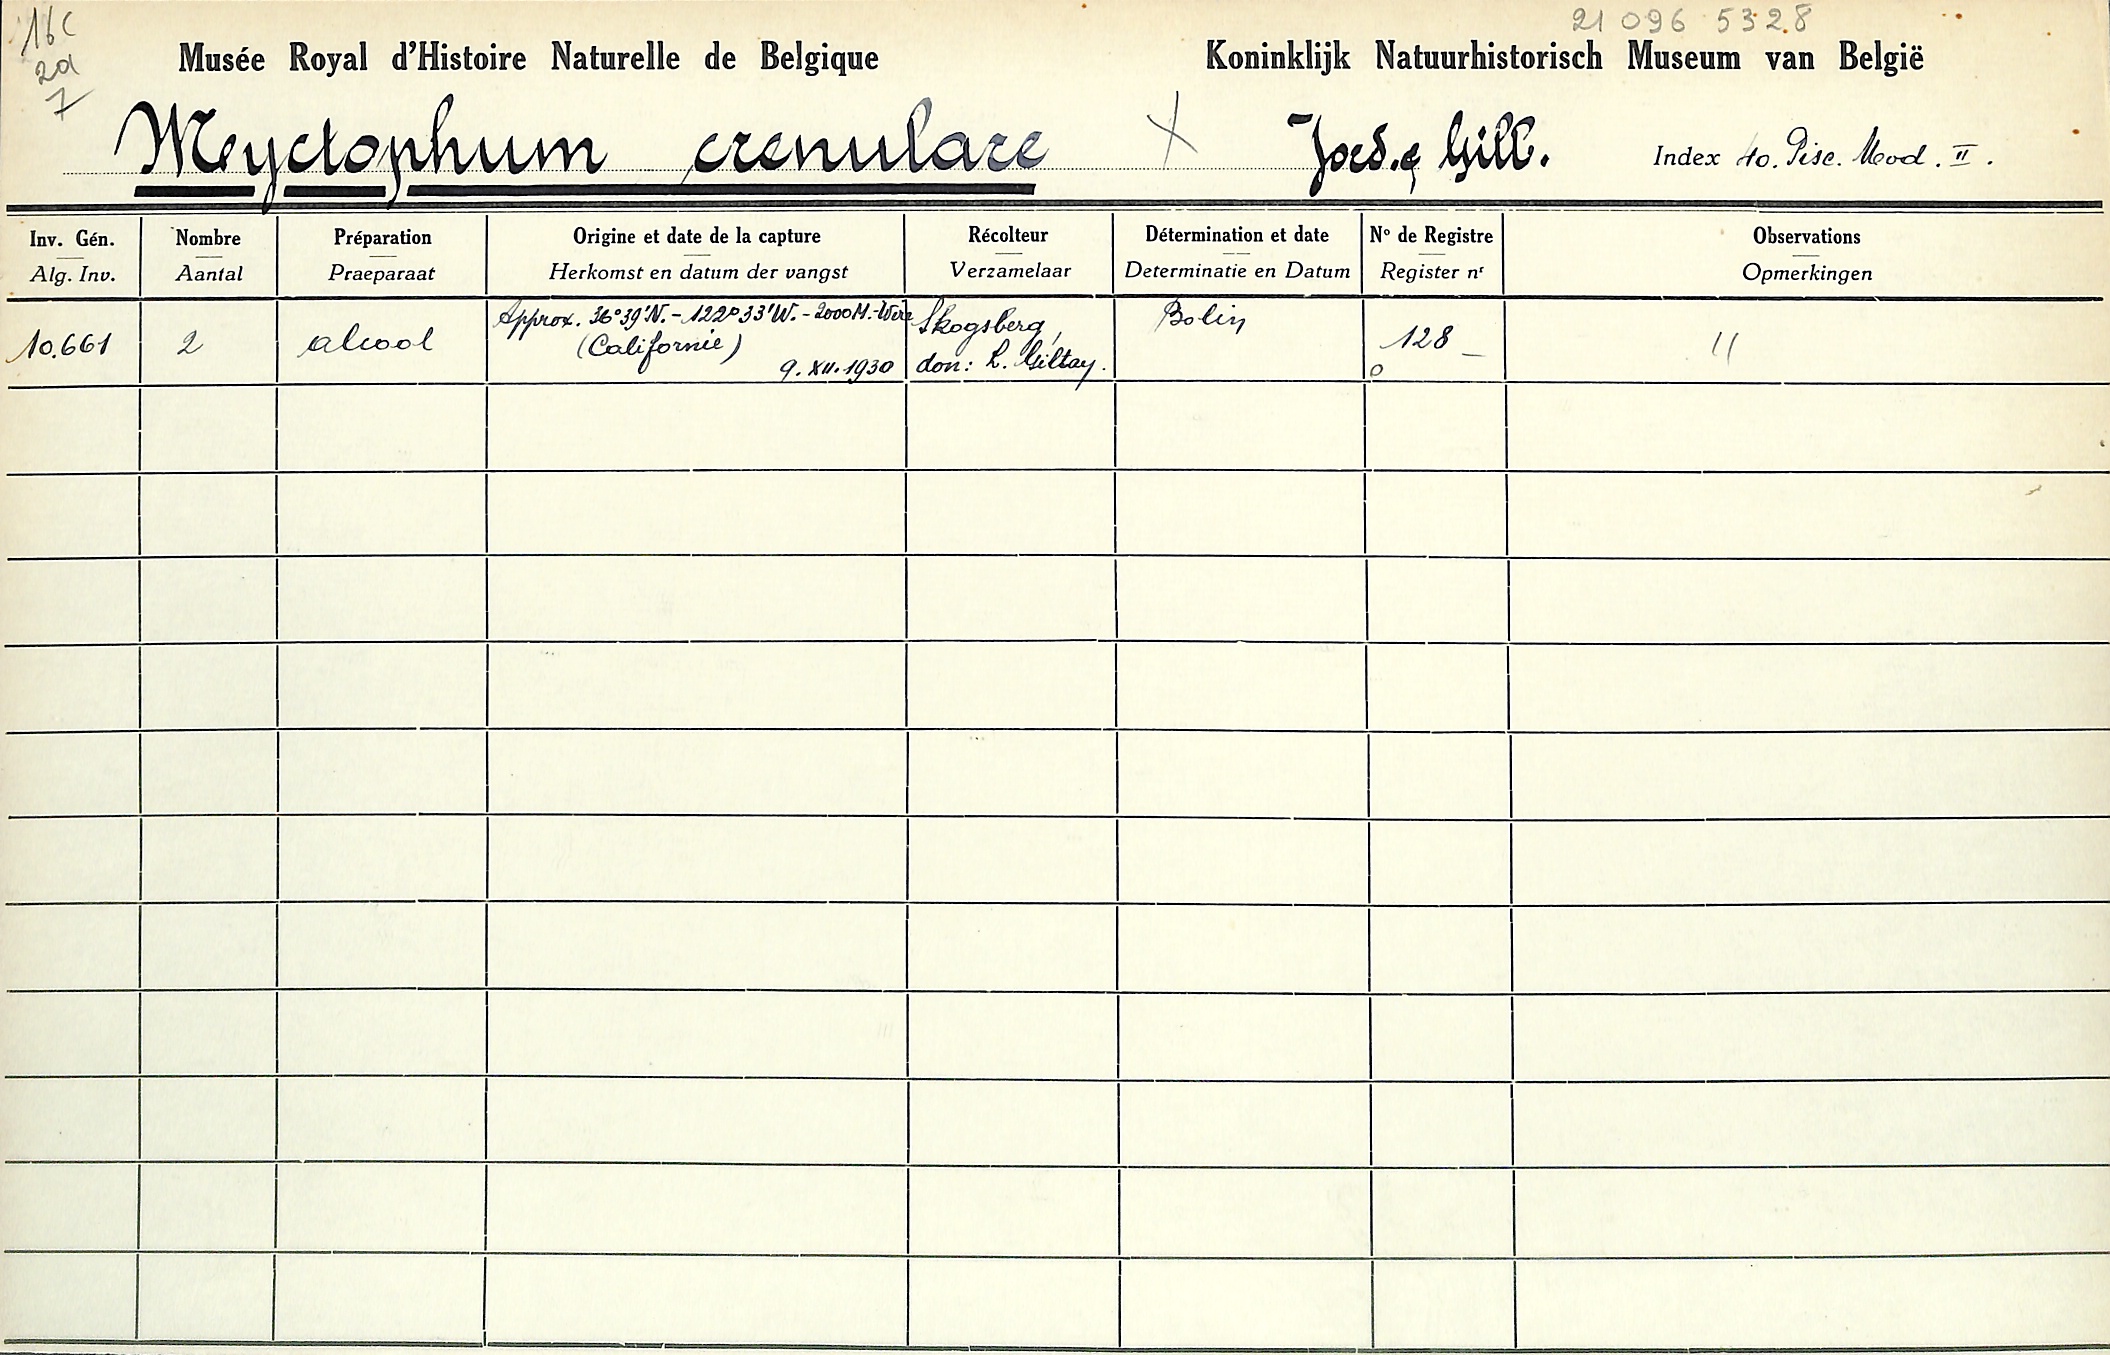 16c
2a
7
21 096 5328
Musée Royal d'Histoire Naturelle de Belgique Koninklijk Natuurhistorisch Museum van België
Meyctophum crenulare X Jord. & Gilb. Index 40. Pisc. Mod. II.
Inv. Gén. Nombre Préparation Origine et date de la capture Récolteur Détermination et date N° de Registre Observations
Alg. Inv. Aantal Praeparaat Herkomst en datum der vangst Verzamelaar Determinatie en Datum Register nr Opmerkingen
Approx. 36°39'N. - 122°33'W. - 2000M.-Wire Skogsberg, Bolin
10.661 2 alcool (Californie) 128 —
9.XII.1930 don: L. Giltay. o